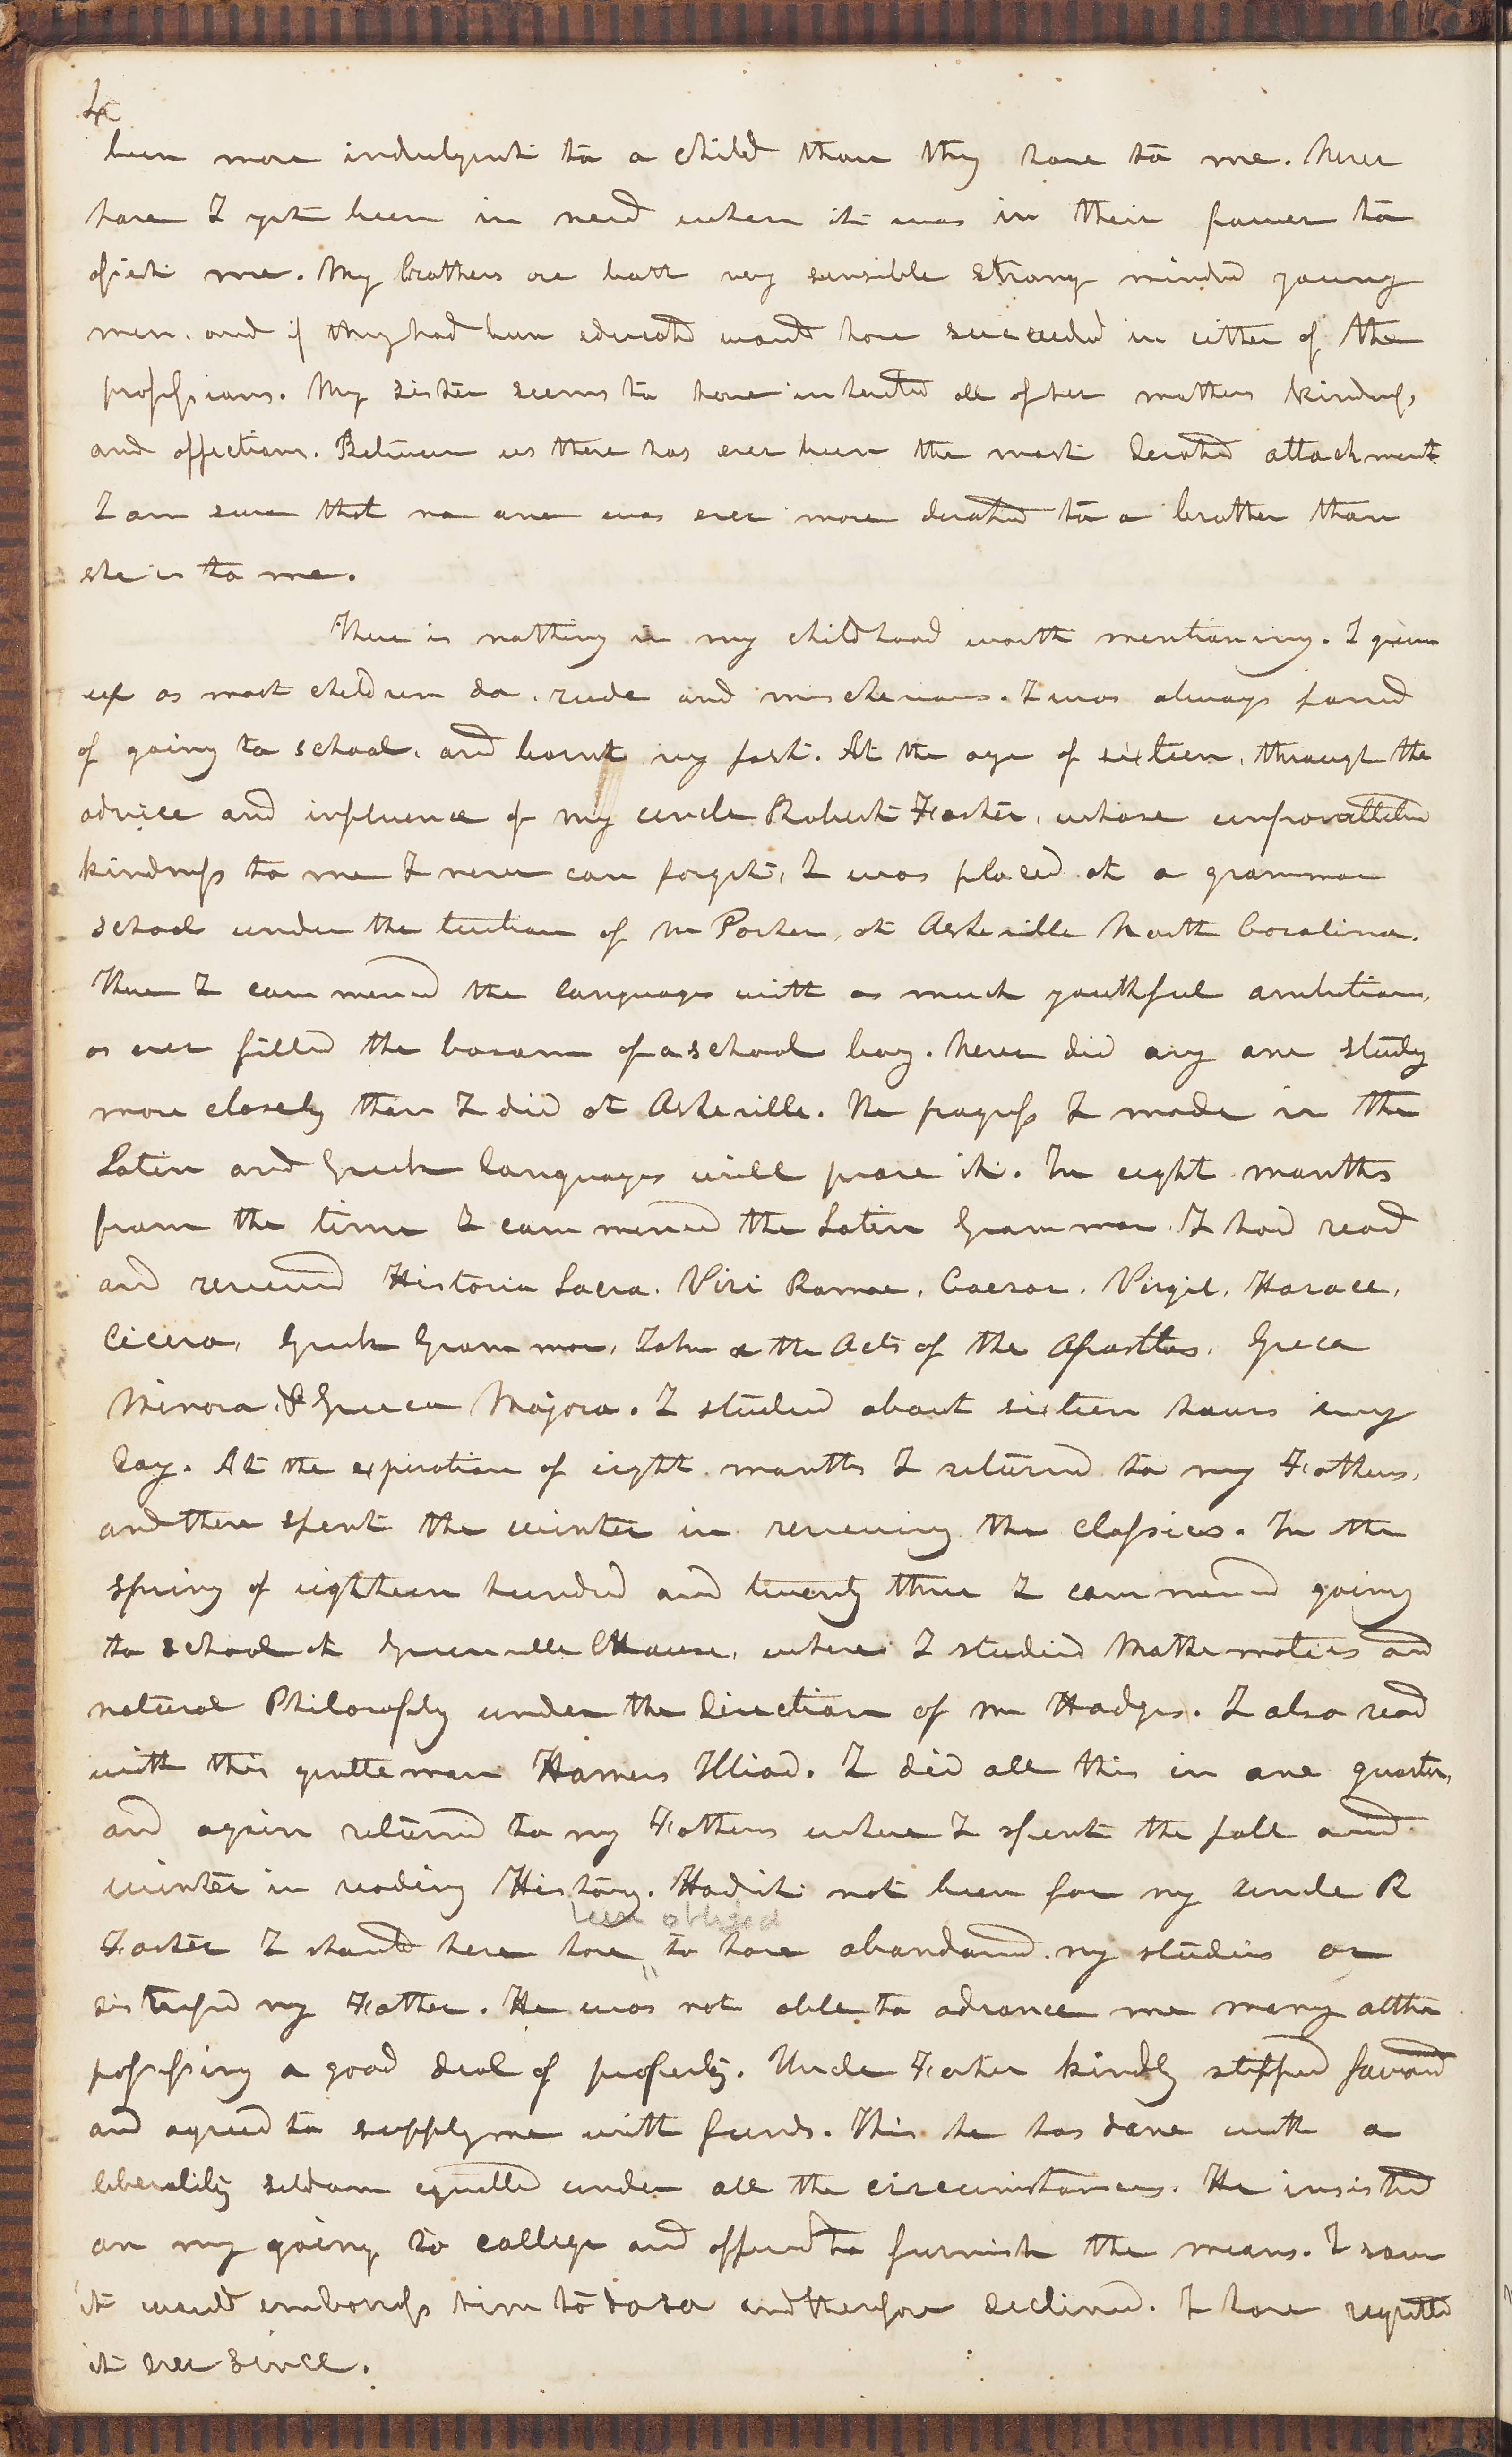 4
been more indulgent to a child than they have to me. Never
have I yet been in need when it was in their power to
assist me. My brothers are both very sensible strong minded young
men, and if they had been educated would have succeeded in either of the
professions. My sister seems to have inherited all of her mothers kindness,
and affections. Between us there has ever been the most devoted attachment
I am sure that no one was ever more devoted to a brother than
she is to me.
There is nothing in my childhood worth mentioning. I grew
up as most children do, rude and mischevous. I was always fond
of going to school, and learnt very fast. At the age of sixteen, through the
advice and influence of my uncle Robert Foster, whose unparalleled
kindness to me I never can forget, I was placed at a grammar
school under the tuition of Mr Porter, at Asheville North Carolina.
There I commenced the languages with as much youthful ambition,
as ever filled the bosom of a school boy. Never did any one study
more closely than I did at Asheville. The progress I made in the
Latin and Greek languages will prove it. In eight months
from the time I commenced the Latin Grammar I had read
and reviewed Historia Sacra, Viri Romae, Caesar, Virgil, Horace,
Cicero, Greek Grammar, John & the Acts of the Apostles, Greca
Minora, & Greca Majora. I studied about sixteen hours every
day. At the expiration of eight months I returned to my Fathers,
and there spent the winter in reviewing the classics. In the
spring of eighteen hundred and twenty three I commenced going
to school at Greenville CHouse, where I studied Mathematics and
natural Philosophy under the direction of Mr Hodges. I also read
with this gentleman Homers Illiad. I did all this in one quarter,
and again returned to my Fathers where I spent the fall and
winter in reading History. Had it not been for my uncle R
been obliged
Foster I should here have " to have abandoned my studies or
distressed my Father. He was not able to advance me money altho
possessing a good deal of property. Uncle Foster kindly stepped forward
and agreed to supply me with funds. This he has done with a
liberality seldom equalled under all the circumstances. He insisted
on my going to college and offered to furnish the means. I saw
it would embarrass him to do so and therefore declined. I have regretted
it ever since.